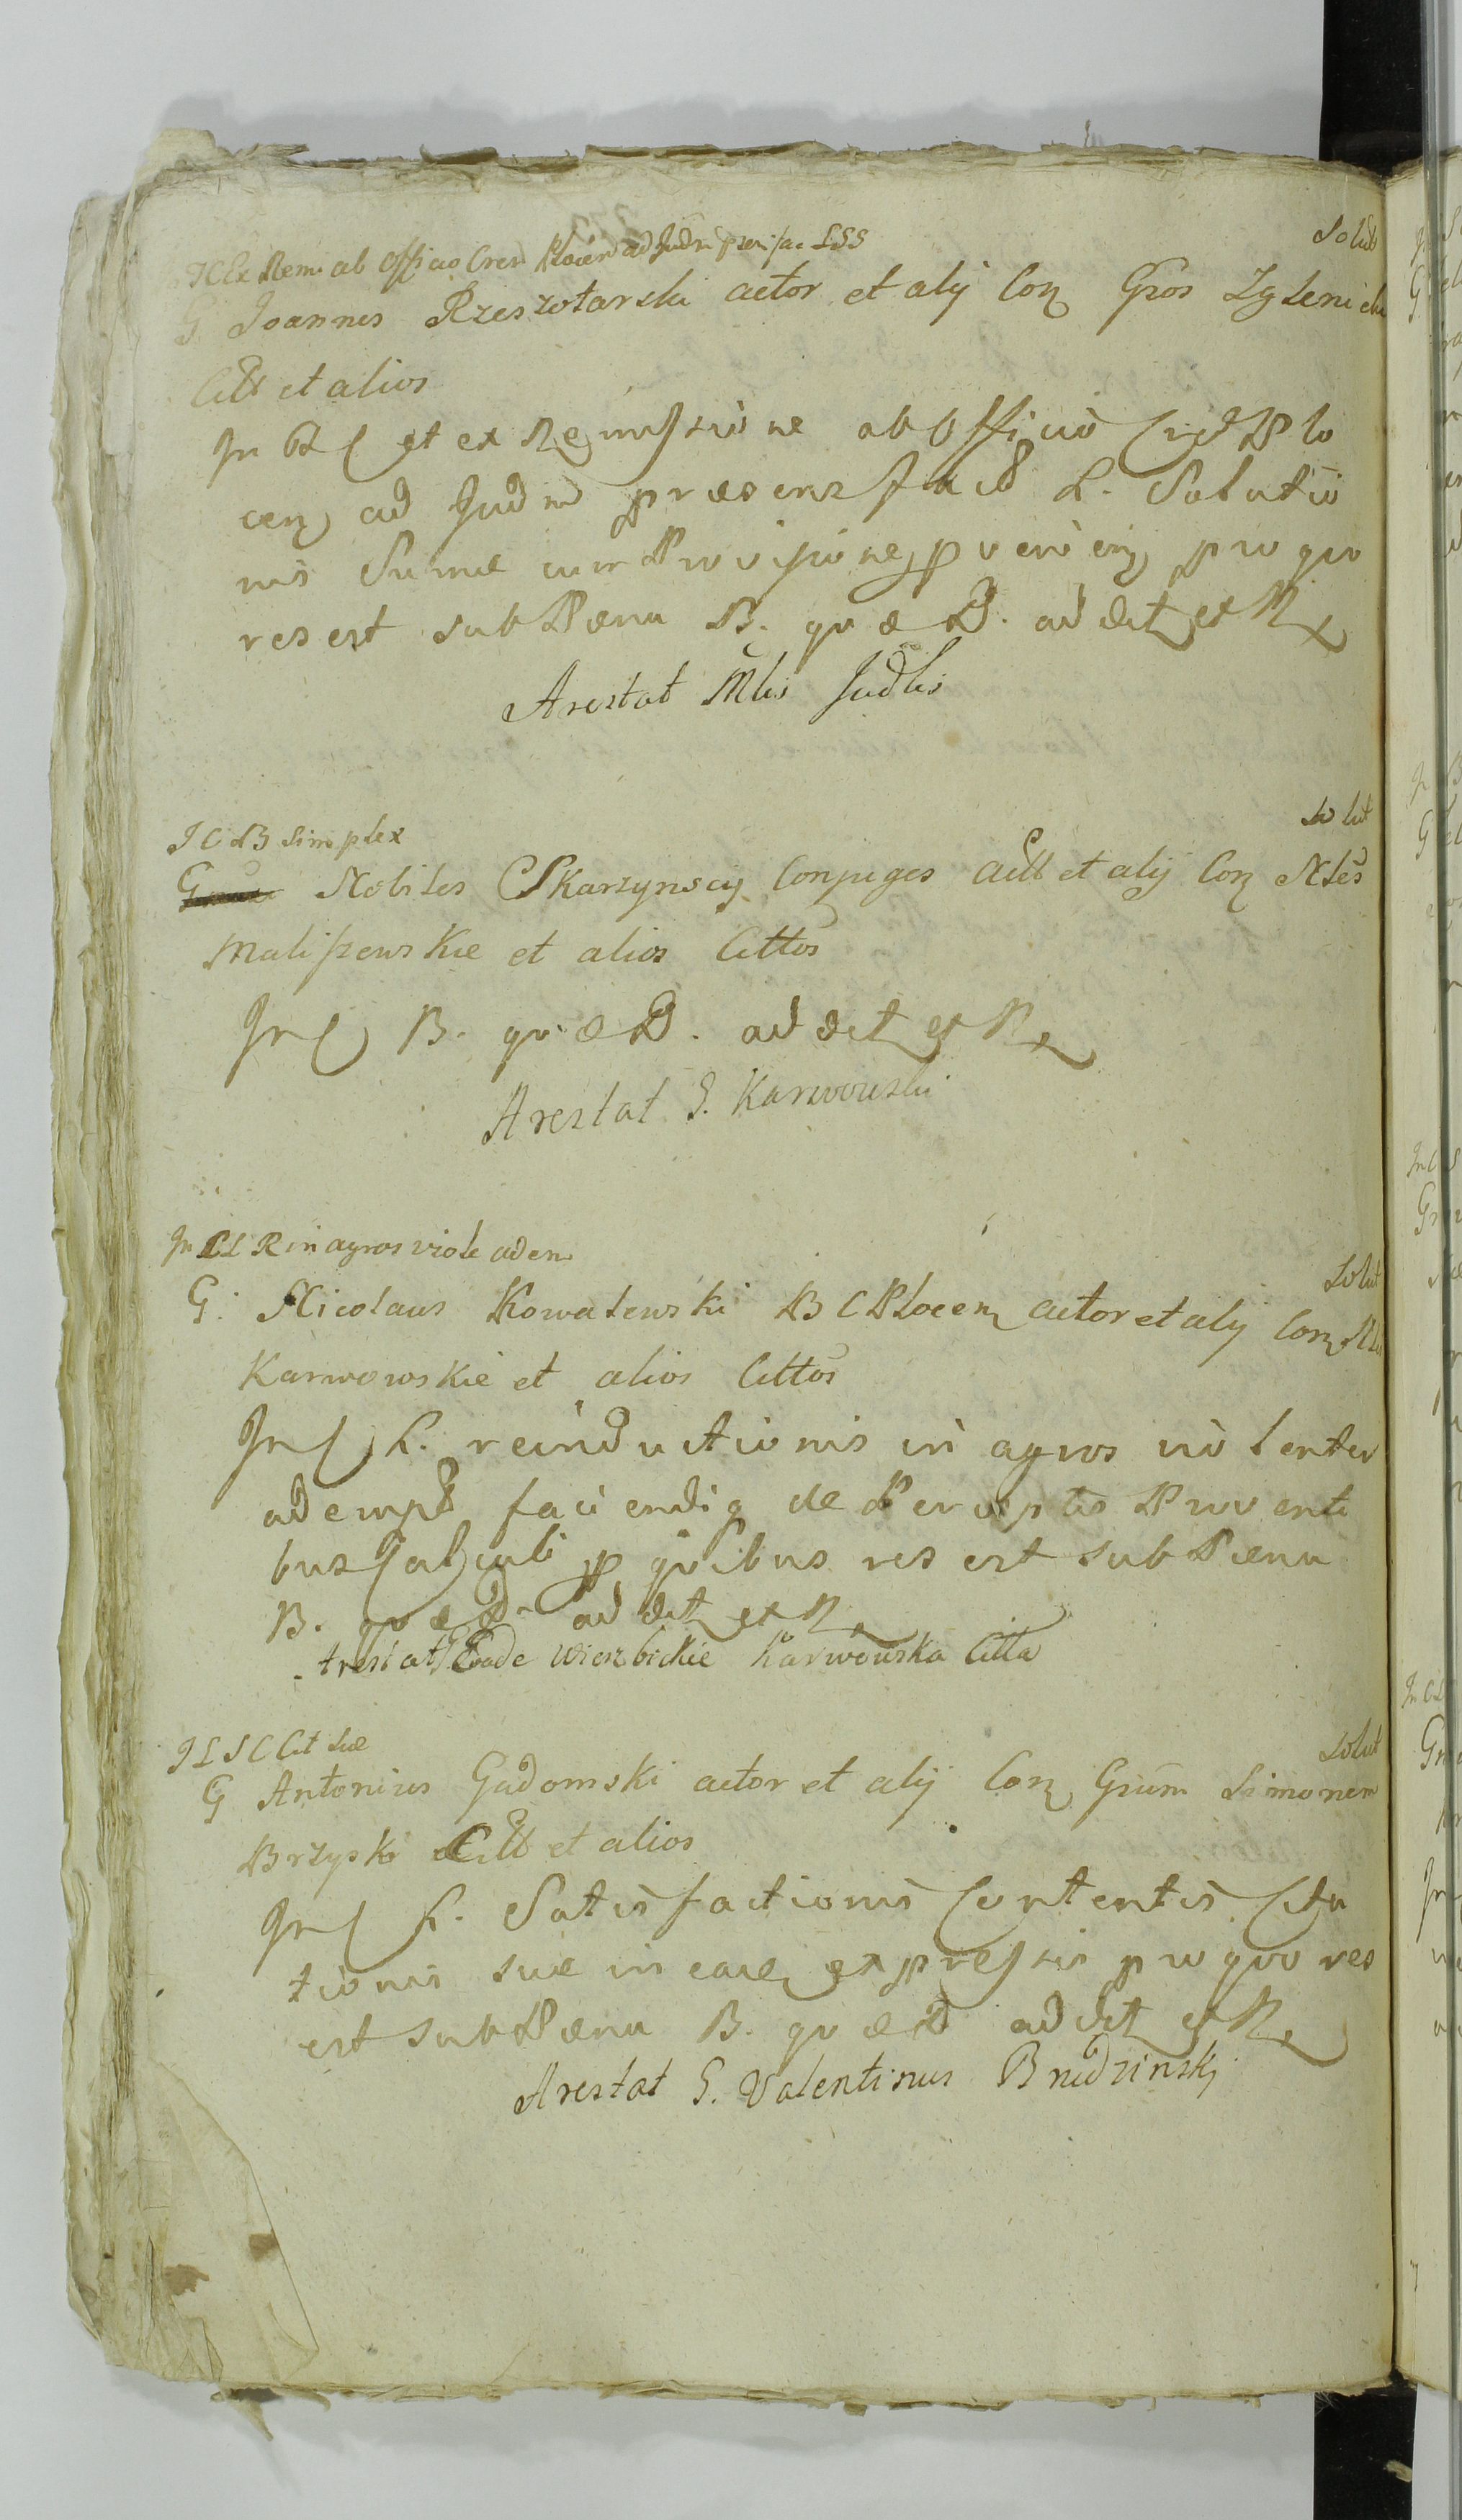 Solut
ICEx Remi ab Officio Cren Plocen ad Judm pren fac LSS
G. Joannes Rzeszotarski actor et alij Con Gros Zglenickie
Citt et alios
In C et ex Remissione ab Officio Plo
cen ad Judm praesens L. Solutio
nis Sumae cum Provisione pro quo
res est sub Paena B. quae D. ad et R
Arestat Mlis Judlis
Solut
I C B simplex
Nobiles Skarzynscy Conjuges Actt et alij Con Nles
Maliszewskie et alios Cittos
In C B. quae D. ad et R
Arestat G. Karwowski
In CL R in agros viole adem
Solut
G. Nicolaus Kowalewski B C Plocen actor et alij Con
Karwowskie et alios Cittos
In C L. reinductionis in agros violenter
adempt faciendiq de Perceptis Proventi
bus Calculi p quibus res est sub Paena
B. quae D. ad et R
Arestat Wierzbickie Karwowska Citta
I L S C Cit suae
Solut
G Antonius Gadomski actor et alij Con Grum Simonem
Brzyski Citt et alios
In C L. Satisfactionis Contentis Cita
tionis suae in eaq expressis pro quo res
est sub Paena B. quae D ad et R
Arestat G. Valentinus Brudzinskj